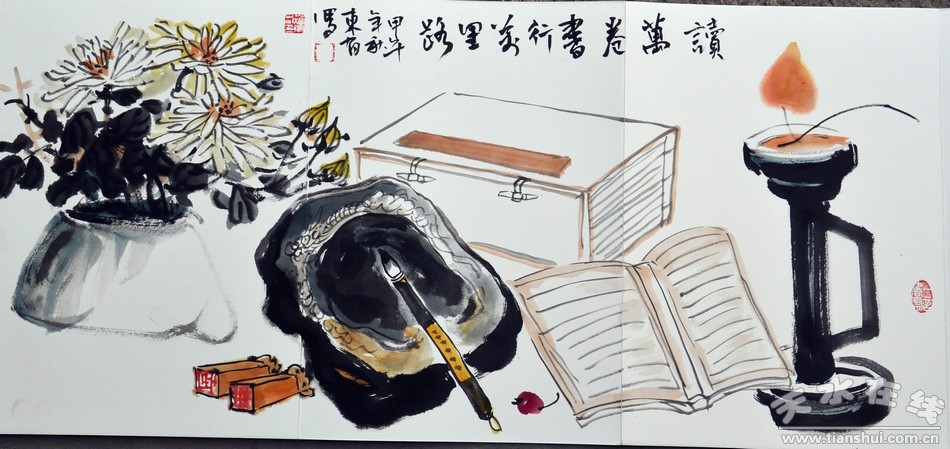 讀萬卷書行萬里路
甲午
年秋
天水在线
www.tianshui.com.cn